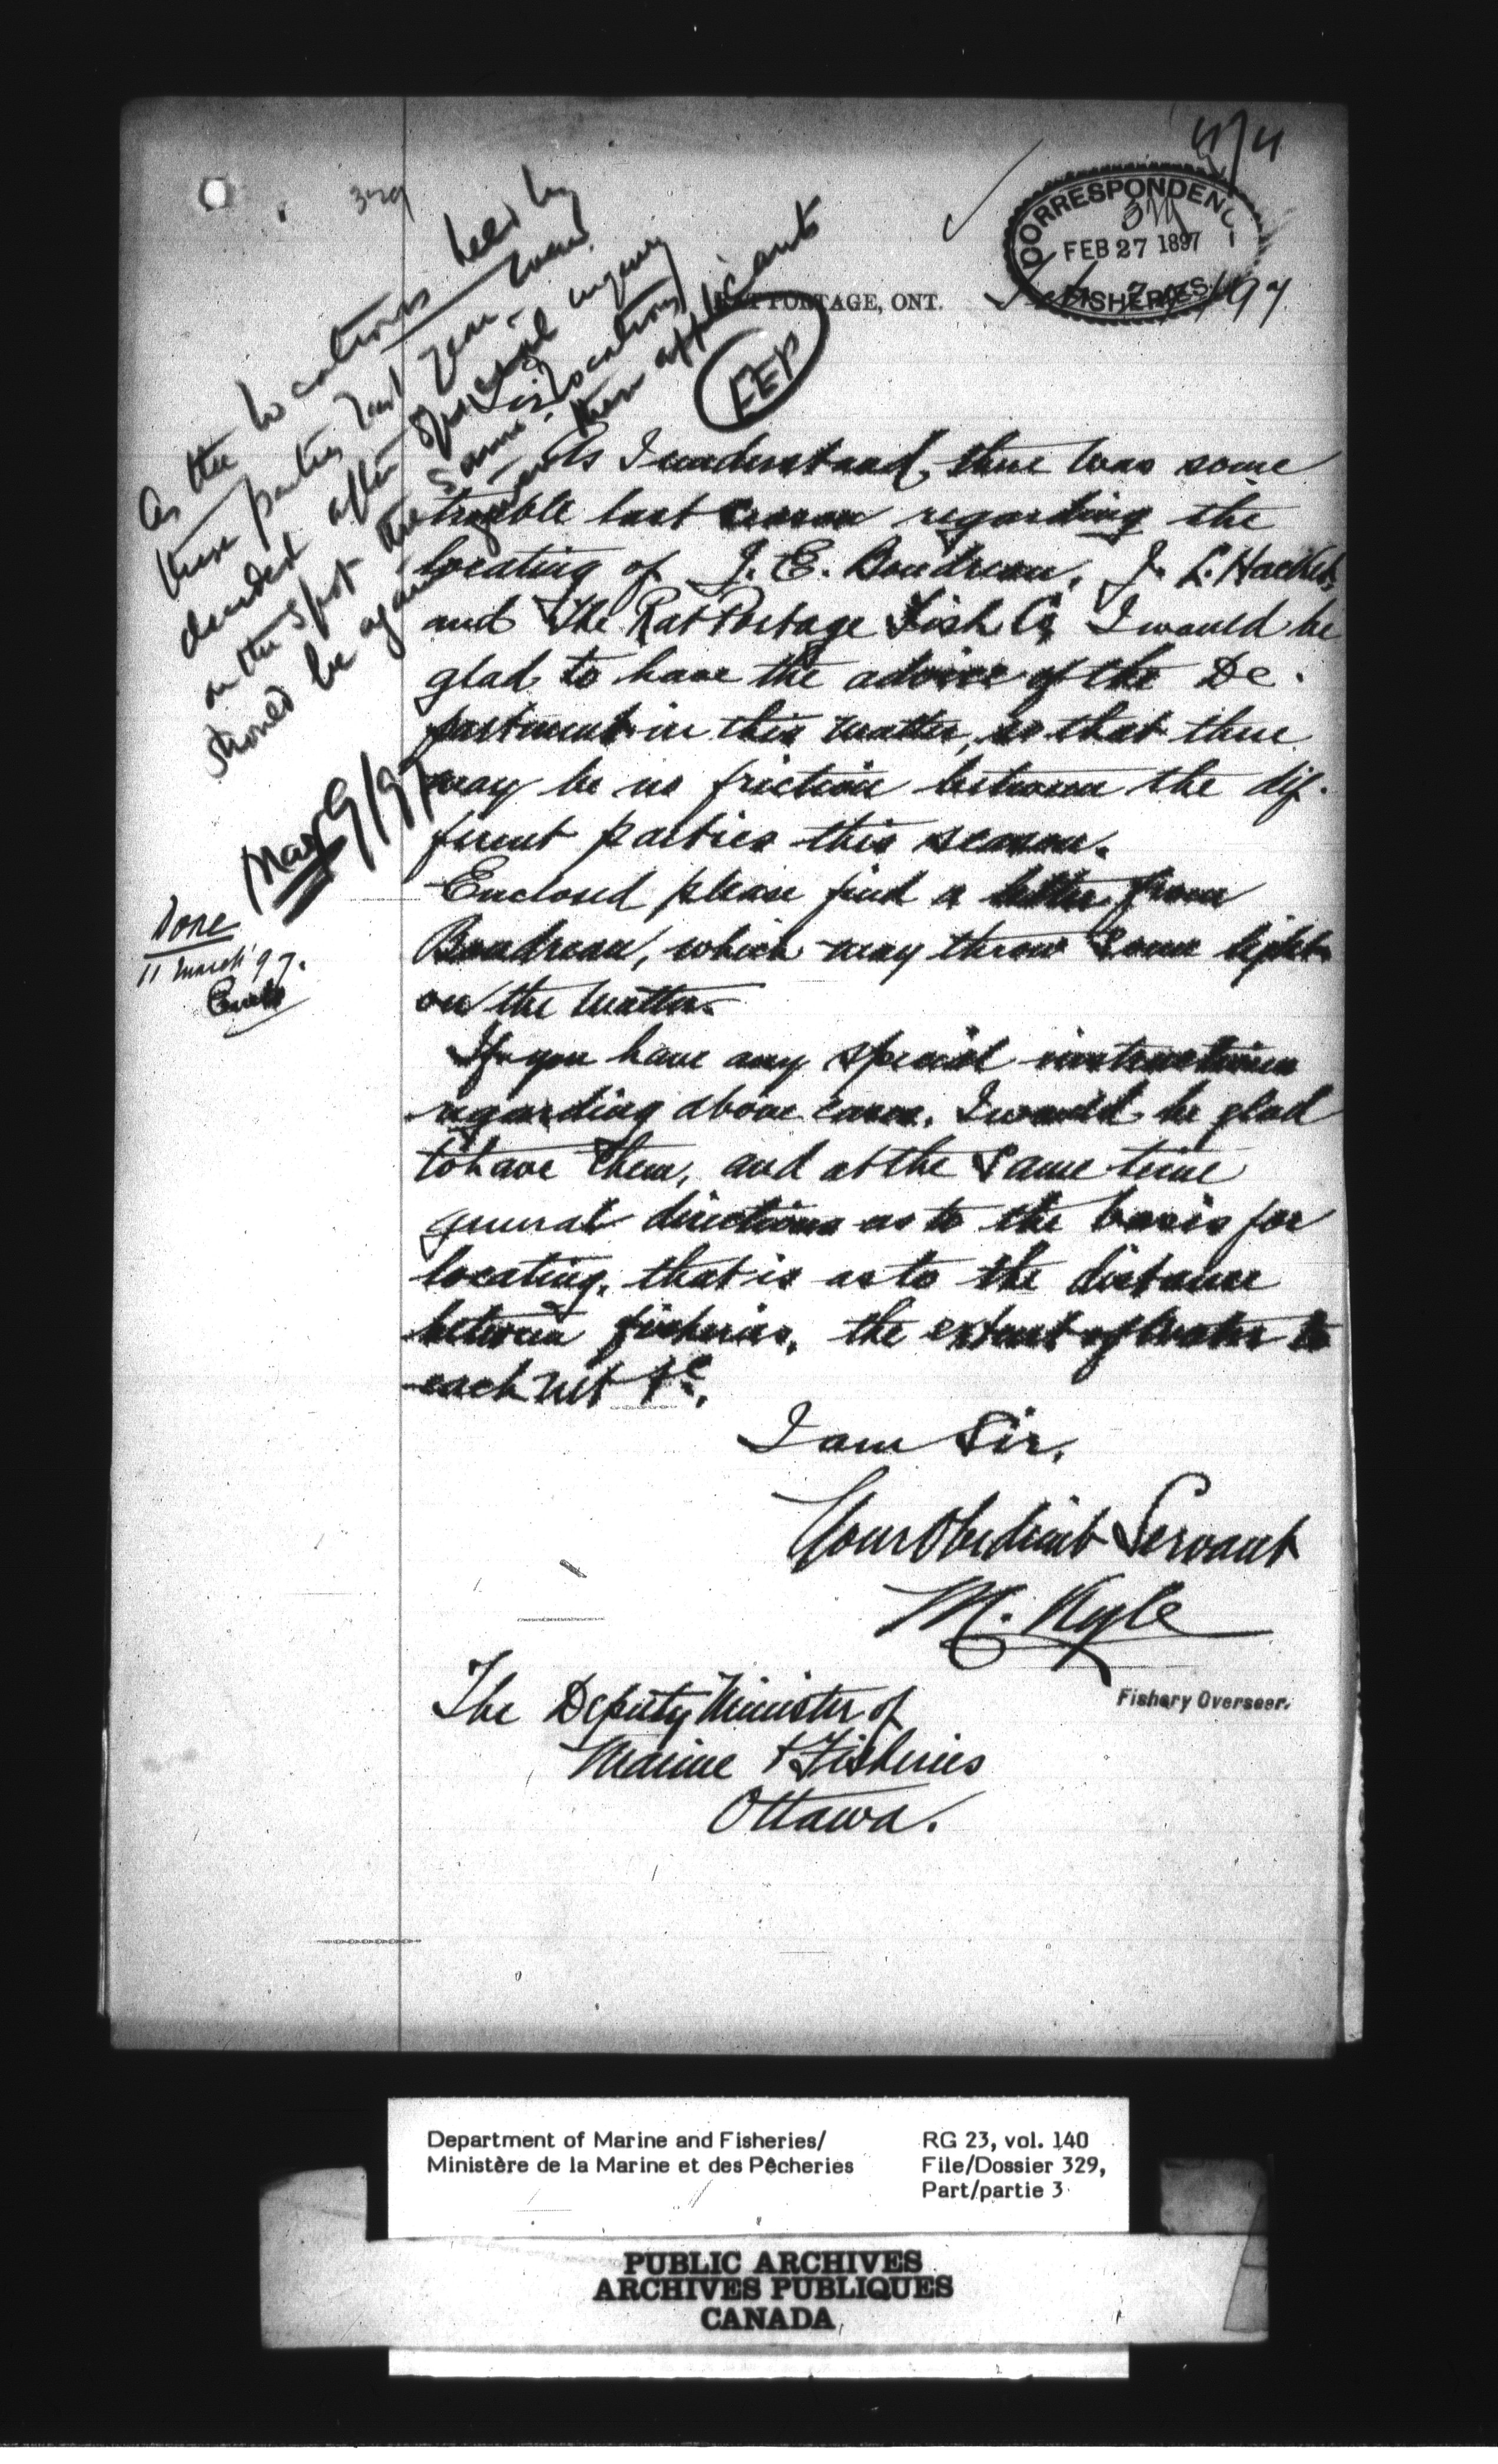 329
4/4
CORRESPONDENC
FEB 27 1897
FISHERIES
RAT PORTAGE, ONT.
97
EEP
As the locations held by
these parties last year were
decided after special inquiry
on the spot the same locations
should be again given them applicants
Mar 9/97
Done
11 March 97.
Sir,
As I understand, there was some
trouble last season regarding the
locating of J. E. Boudreau, J. L. Hacket,
and The Rat Portage Fish Co, I would be
glad to have the advice of the De-
partment in this matter, so that there
may be no friction between the dif-
ferent parties this season.
Enclosed please find a letter from
Boudreau, which may throw some light
on the matter.
If you have any special instructions
regarding above cases, I would be glad
to have them, and at the same time
general directions as to the basis for
locating, that is as to the distance
between fisheries, the extent of water to
each net &c.,
I am Sir,
Your Obedient Servant
M. Kyle
Fishery Overseer.
The Deputy Minister of
Marine & Fisheries
Ottawa.
Department of Marine and Fisheries/
Ministère de la Marine et des Pêcheries
RG 23, vol. 140
File/Dossier 329,
Part/partie 3
PUBLIC ARCHIVES
ARCHIVES PUBLIQUES
CANADA